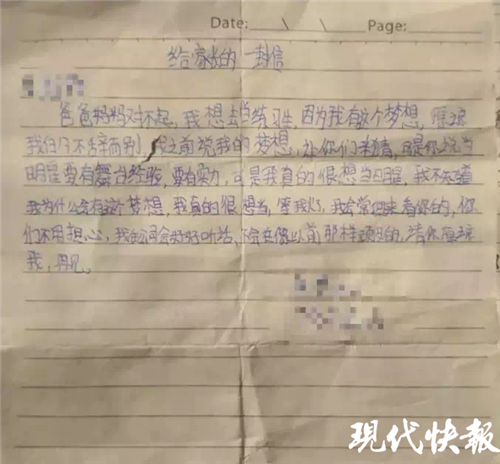 Date: \ \ Page:
给家长的一封信
爸爸妈妈对不起,我想去当练习生,因为我有这个梦想,原谅
我的不辞而别,我之前说我的梦想,你们 可是你说当
明星要有舞台经验,要有实力,可是我真的很想当明星,我不知道
我为什么会有这个梦想,我真的很想当,等我 了,我会常回来看你的,你
们不用担心,我 会好好听话,不会在像以前那样顽 的,请你原谅
我,再见。
现代快报